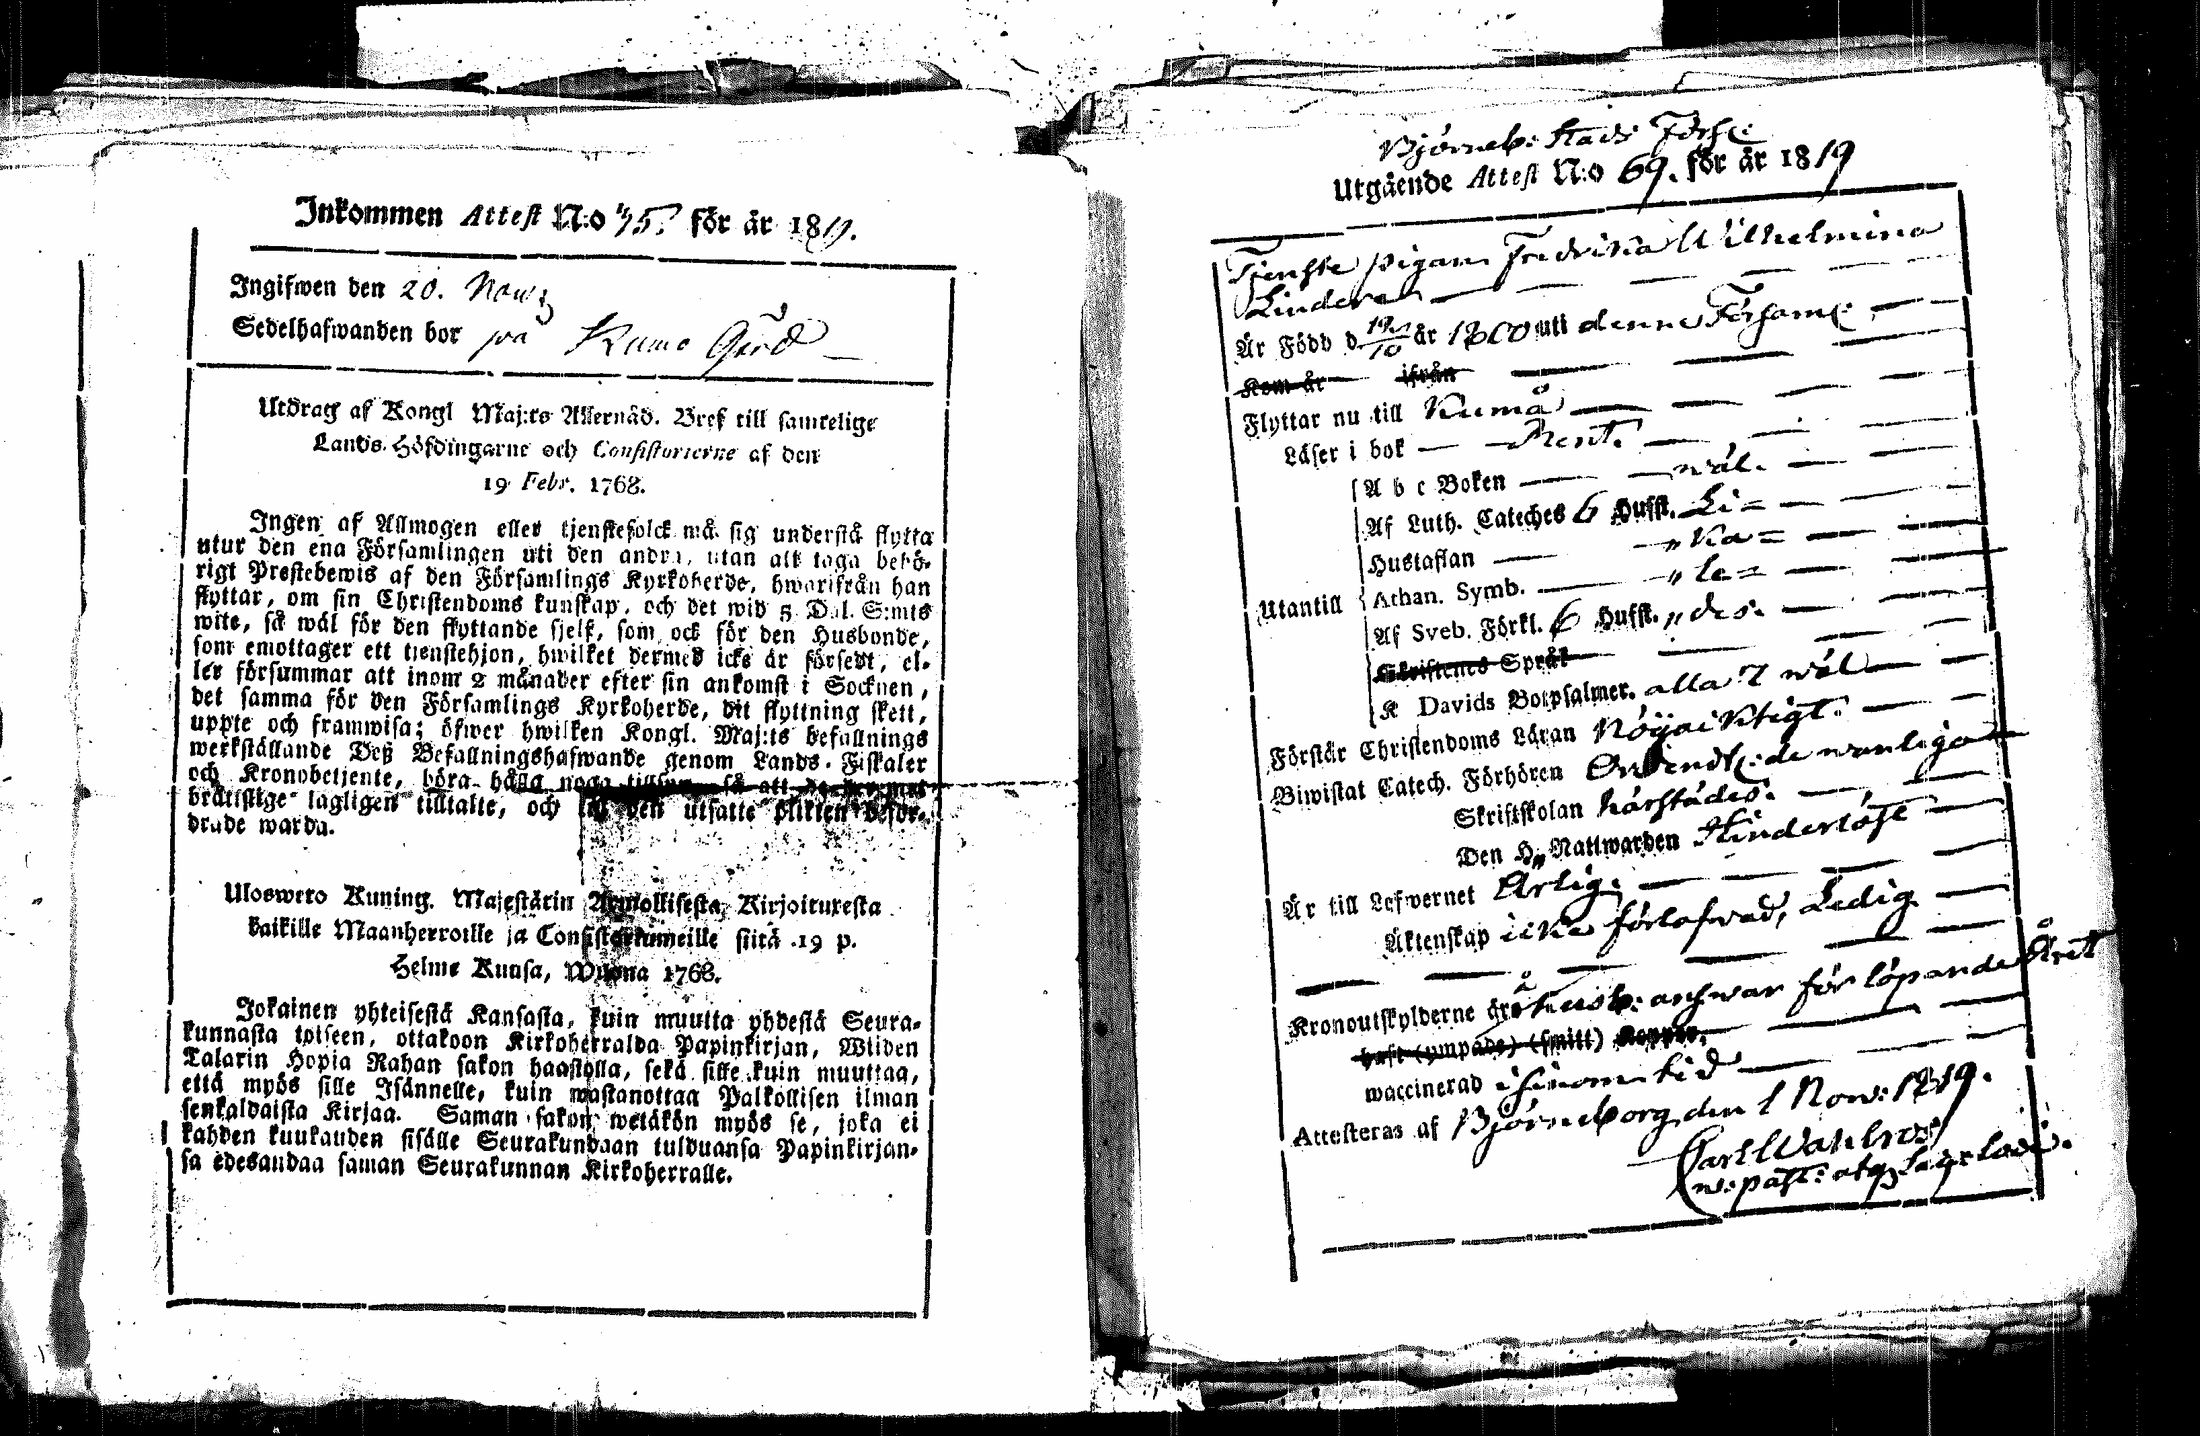 Inkommen Attest N:o 75. för år 1819.
Ingifwen den 20. Nov;
Sedelhafwanden bor på Kumo Gård
Utdrag af Kongl Maj:ts Allernåd. Bref till samtelige
Lands-Höfdingarne och Consistorierne af den
19 Febr. 1768.
Ingen af Allmogen eller tjenstefolck må sig understå flytta
utur den ena Församlingen uti den andra, utan att taga behö-
rigt Prestebewis af den Församlings Kyrkoherde, hwarifrån han
flyttar, om sin Christendoms kunskap, och det wid 5 Dal. S:mts
wite, så wäl för den flyttande sjelf, som ock för den Husbonde,
som emottager ett tjenstehjon, hwilket dermed icke är försedt, el-
ler försummar att inom 2 månader efter sin ankomst i Socknen,
det samma för den Församlings Kyrkoherde, dit flyttning skett,
uppte och framwisa; öfwer hwilken Kongl. Maj:ts befallnings
werkställande Deß Befallningshafwande genom Lands-Fiskaler
och Kronobetjente, böra hålla noga tillsyn, så att de
brottslige lagligen tilltalte, och till den utsatte plikten beford-
drade warda.
Uloswero Kuning. Majestärin Armollisesta Kirjoituxesta
kaikille Maanherroille ja Consistoriumeille siitä 19 p.
Helme Kuusa, Wuona 1768.
Jokainen yhteisestä Kansasta, kuin muutta yhdestä Seura-
kunnasta toiseen, ottakoon Kirkoherralda Papinkirjan, Wiiden
Talarin Hopia Rahan sakon haastolla, sekä sille kuin muuttaa,
että myös sille Isännelle, kuin wastanottaa Palkollisen ilman
senkaldaista Kirjaa. Saman sakon wetäkön myös se, joka ei
kahden kuukauden sisälle Seurakundaan tulduansa Papinkirjan-
sa edesandaa saman Seurakunnan Kirkoherralle.
Björneb: Stads Förs:
Utgående Attest N:o 69. för år 1819
Tjenste pigan Fredrika Wilhelmina
Linder
Är Född d 19/10 år 1800 uti denne Församl:
Kom år ifrån
Flyttar nu till Kumå
Läser i bok Rent.
Utantill
A b c Boken wäl.
Af Luth. Cateches 6 Hufst. Li=
Hustaflan " Ka=
Athan. Symb. " le=
Af Sveb. Förkl. 6 Hufst. " des.
Skriftenes Språk
K Davids Botpsalmer. alla 7 wäl
Förstår Christendoms Läran Nöjaktigt.
Biwistat Catech. Förhören Ordentl: de wanliga
Skriftskolan härstädes.
Den H. Nattwarden Hinderlöst
Är till Lefwernet Ärlig.
Äktenskap icke förlofwad, Ledig
Kronoutskylderne är å Husb: answar för löpande Året
haft (ympade) (smitt) Koppor.
waccinerad i sinom tid
Attesteras af Björneborg den 1 Nov: 1819.
Carl Wahlroos